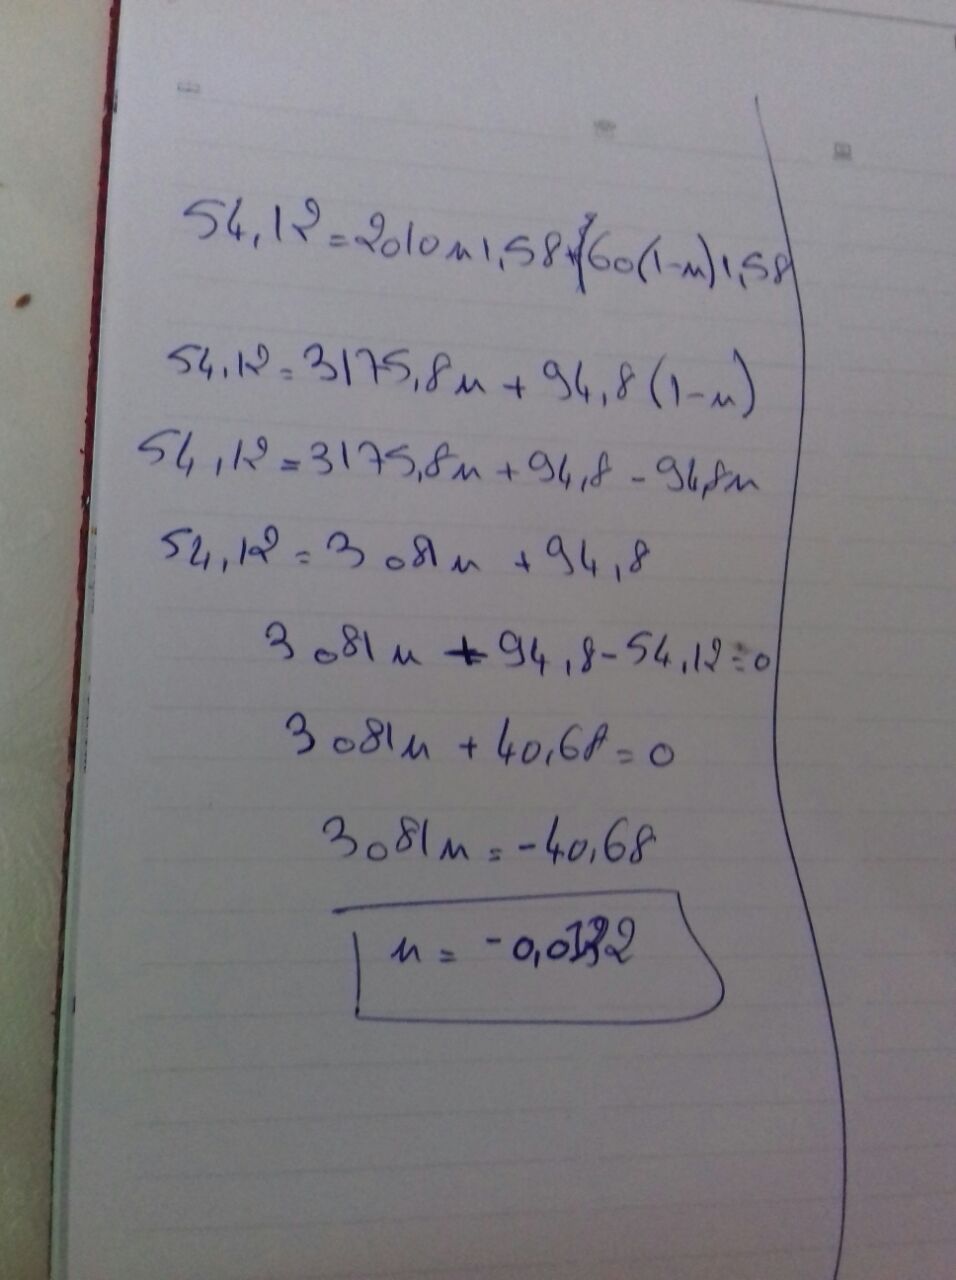 54,12=2010x1,58+60(1-x)1,58
54,12=3175,8x+94,8(1-x)
54,12=3175,8x+94,8-94,8x
54,12=3081x+94,8
3081x+94,8-54,12=0
3081x+40,68=0
3081x=-40,68
x=-0,0132